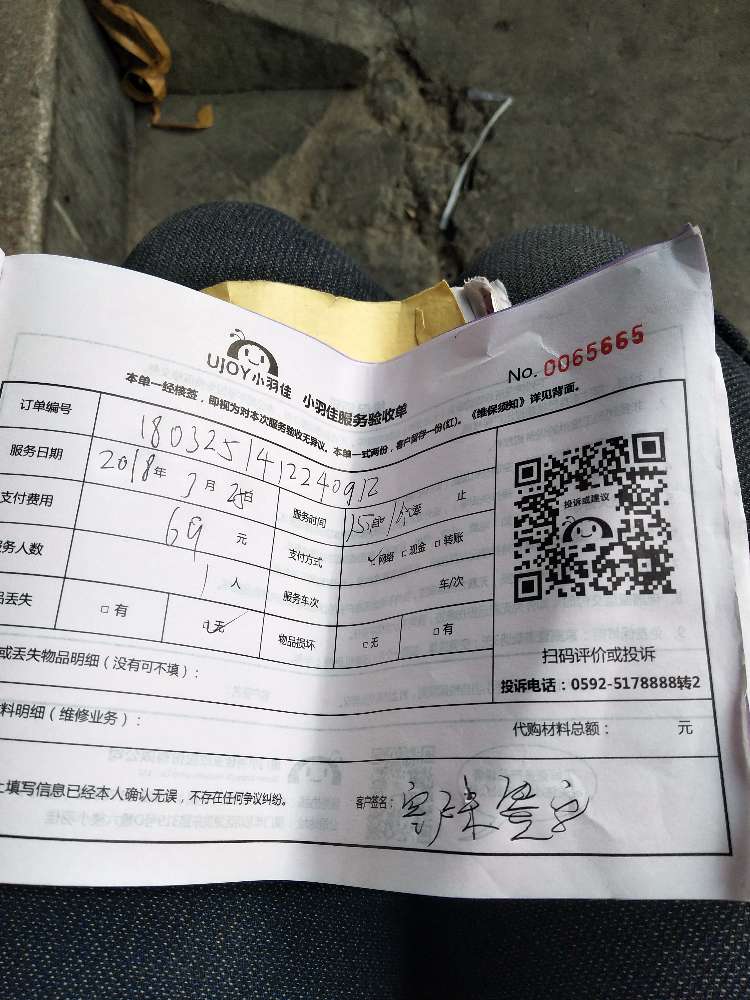 UJOY小羽佳 小羽佳服务验收单
No. 0065665
本单一经接签，即视为对本次服务验收无异议。本单一式两份，客户留存一份(红)。《维保须知》详见背面。
订单编号 1803251412240912
服务日期 2018年 3月 25日 服务时间 止
支付费用 69 元 支付方式 ✓网络 □现金 □转账
务人数 1 人 服务车次 车/次
品丢失 □有 ☑无 物品损坏 □无 □有
投诉或建议
扫码评价或投诉
投诉电话：0592-5178888转2
或丢失物品明细（没有可不填）：
料明细（维修业务）： 代购材料总额： 元
上填写信息已经本人确认无误，不存在任何争议纠纷。 客户签名：